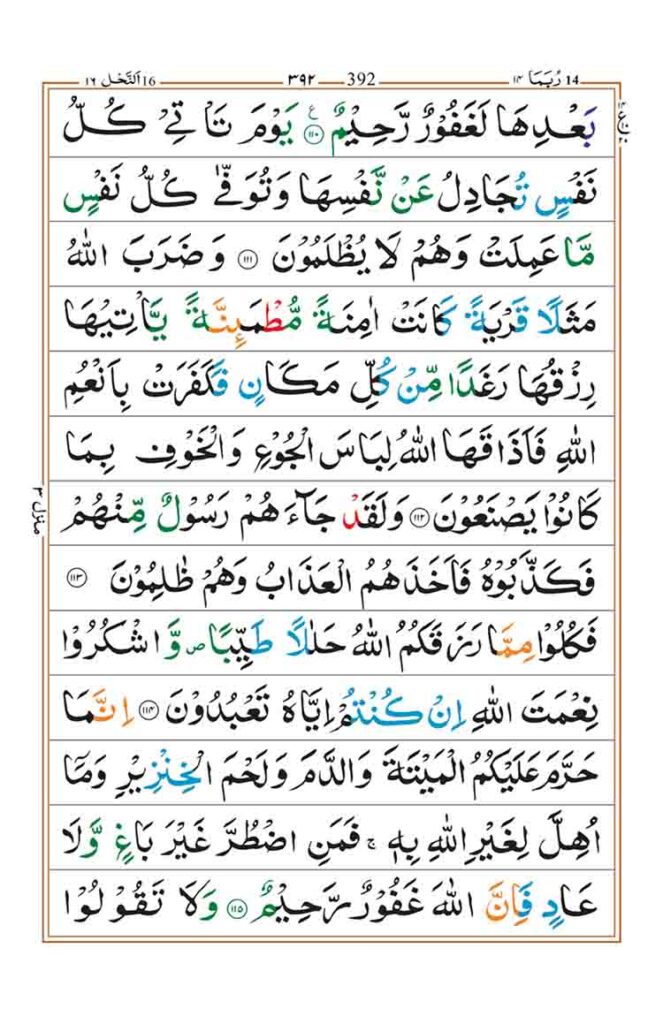 14 رُبَمَا ۱۴ — 392 ۳۹۲ — 16 اَلنَّحْل ۱۶
بَعْدِهَا لَغَفُوْرٌ رَّحِيْمٌ ۝۱۱۰ ع يَوْمَ تَاْتِيْ كُلُّ
نَفْسٍ تُجَادِلُ عَنْ نَّفْسِهَا وَتُوَفّٰى كُلُّ نَفْسٍ
مَّا عَمِلَتْ وَهُمْ لَا يُظْلَمُوْنَ ۝۱۱۱ وَضَرَبَ اللّٰهُ
مَثَلًا قَرْيَةً كَانَتْ اٰمِنَةً مُّطْمَىِٕنَّةً يَّاْتِيْهَا
رِزْقُهَا رَغَدًا مِّنْ كُلِّ مَكَانٍ فَكَفَرَتْ بِاَنْعُمِ
اللّٰهِ فَاَذَاقَهَا اللّٰهُ لِبَاسَ الْجُوْعِ وَالْخَوْفِ بِمَا
كَانُوْا يَصْنَعُوْنَ ۝۱۱۲ وَلَقَدْ جَآءَهُمْ رَسُوْلٌ مِّنْهُمْ
فَكَذَّبُوْهُ فَاَخَذَهُمُ الْعَذَابُ وَهُمْ ظٰلِمُوْنَ ۝۱۱۳
فَكُلُوْا مِمَّا رَزَقَكُمُ اللّٰهُ حَلٰلًا طَيِّبًا ص وَّاشْكُرُوْا
نِعْمَتَ اللّٰهِ اِنْ كُنْتُمْ اِيَّاهُ تَعْبُدُوْنَ ۝۱۱۴ اِنَّمَا
حَرَّمَ عَلَيْكُمُ الْمَيْتَةَ وَالدَّمَ وَلَحْمَ الْخِنْزِيْرِ وَمَآ
اُهِلَّ لِغَيْرِ اللّٰهِ بِهٖ ۚ فَمَنِ اضْطُرَّ غَيْرَ بَاغٍ وَّلَا
عَادٍ فَاِنَّ اللّٰهَ غَفُوْرٌ رَّحِيْمٌ ۝۱۱۵ وَلَا تَقُوْلُوْا
منزل ۳